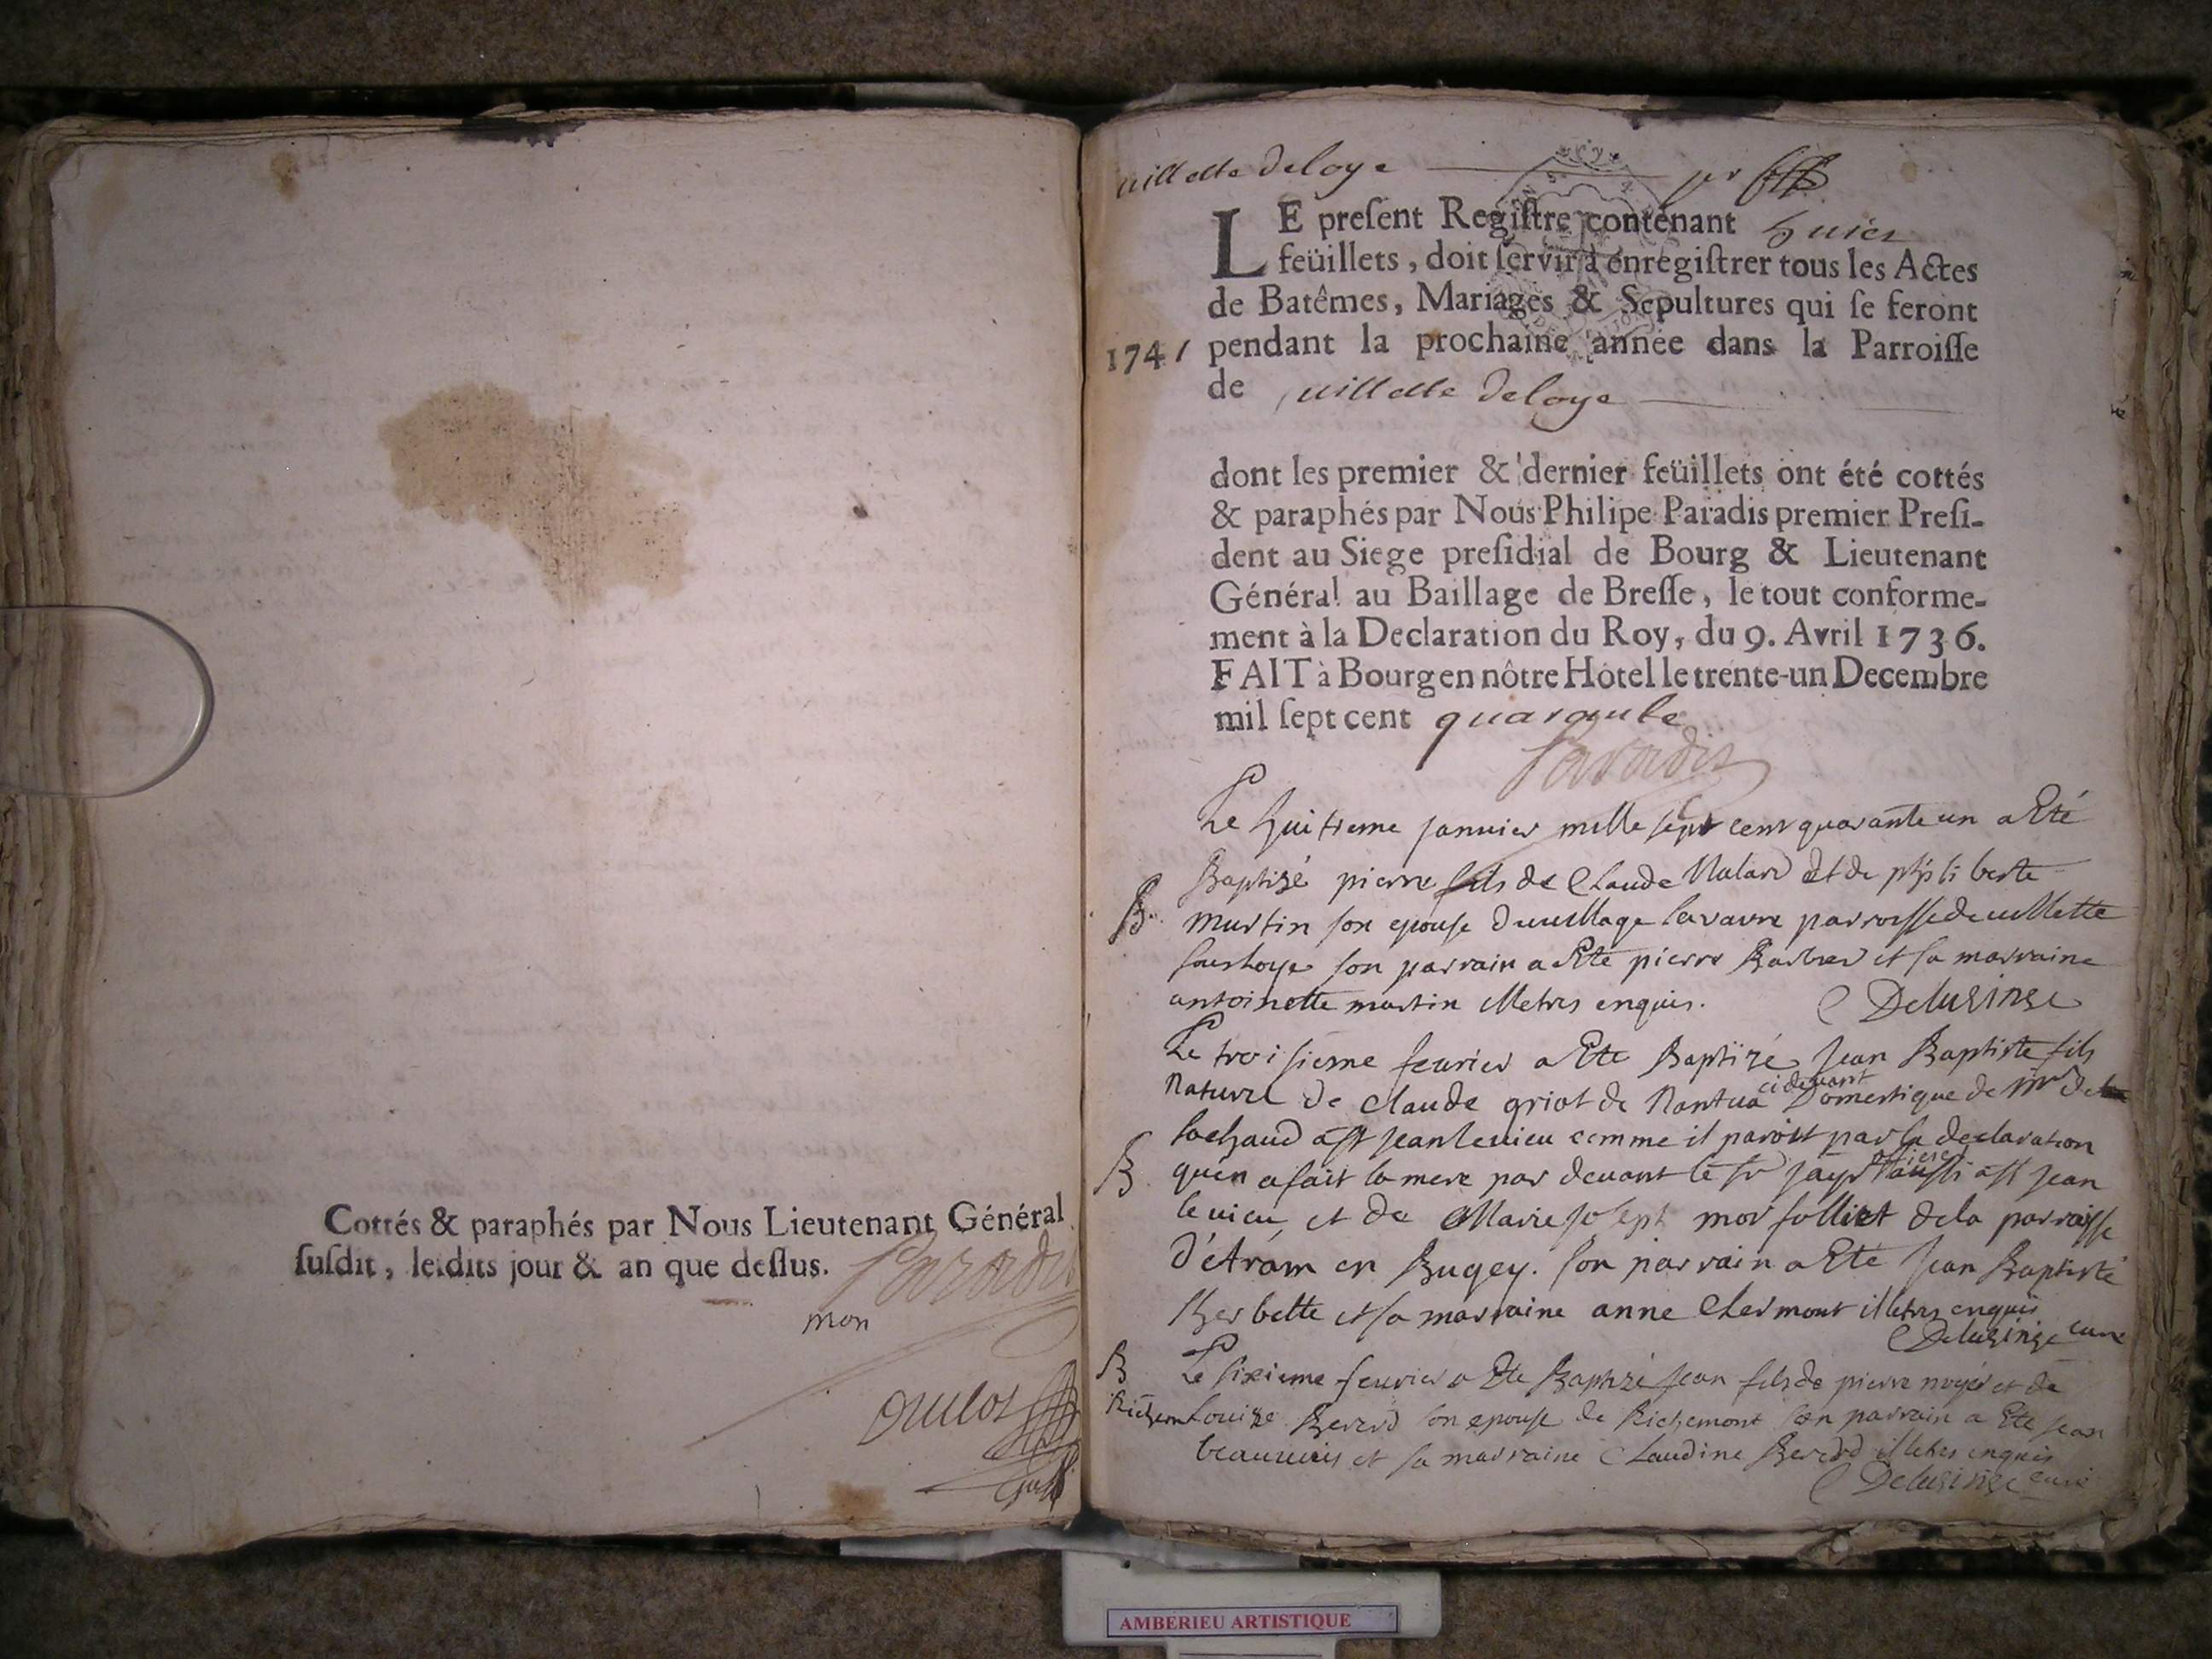 Cottés & paraphés par Nous Lieutenant Général
ſuſdit, leſdits jour & an que deſſus.
Paradis
mon
villette deloye
LE preſent Regiſtre contenant huict
feüillets, doit ſervir à enregiſtrer tous les Actes
de Batêmes, Mariages & Sepultures qui ſe feront
1741 pendant la prochaine année dans la Parroiſſe
de villette deloye
dont les premier & dernier feüillets ont été cottés
& paraphés par Nous Philipe Paradis premier Preſi-
dent au Siege preſidial de Bourg & Lieutenant
Général au Baillage de Breſſe, le tout conforme-
ment à la Declaration du Roy, du 9. Avril 1736.
FAIT à Bourg en nôtre Hôtel le trente-un Decembre
mil ſept cent quarante
Paradis
Le huitieme janvier mille sept cent quarante un a Eté
Baptisé pierre fils de Claude et de philiberte
B. martin son epouse du village parroisse de villette
son parrain a Eté pierre et sa marraine
antoinette martin illetrés enquis. Delusinge
Le troisieme fevrier a Eté Baptizé Jean Baptiste fils
naturel de Claude griot de Nantua ci devant Domestique de Mr de
lachaud a St jean le vieu comme il paroit par la declaration
B. qu'en a fait la mere par devant le Sr aussi a St jean
le vieu, et de Marie joseph de la parroisse
d'étram en Bugey. son parrain a Eté Jean Baptiste
et sa marraine anne Clermont illetrés enquis
Delusinge curé
B Le sixieme fevrier a Eté Baptizé Jean fils de pierre noyer et de
Richem Louise Bererd son epouse de Richemont son parrain a Eté Jean
beauvais et sa marraine Claudine Bererd illetrés enquis
Delusinge curé
AMBERIEU ARTISTIQUE